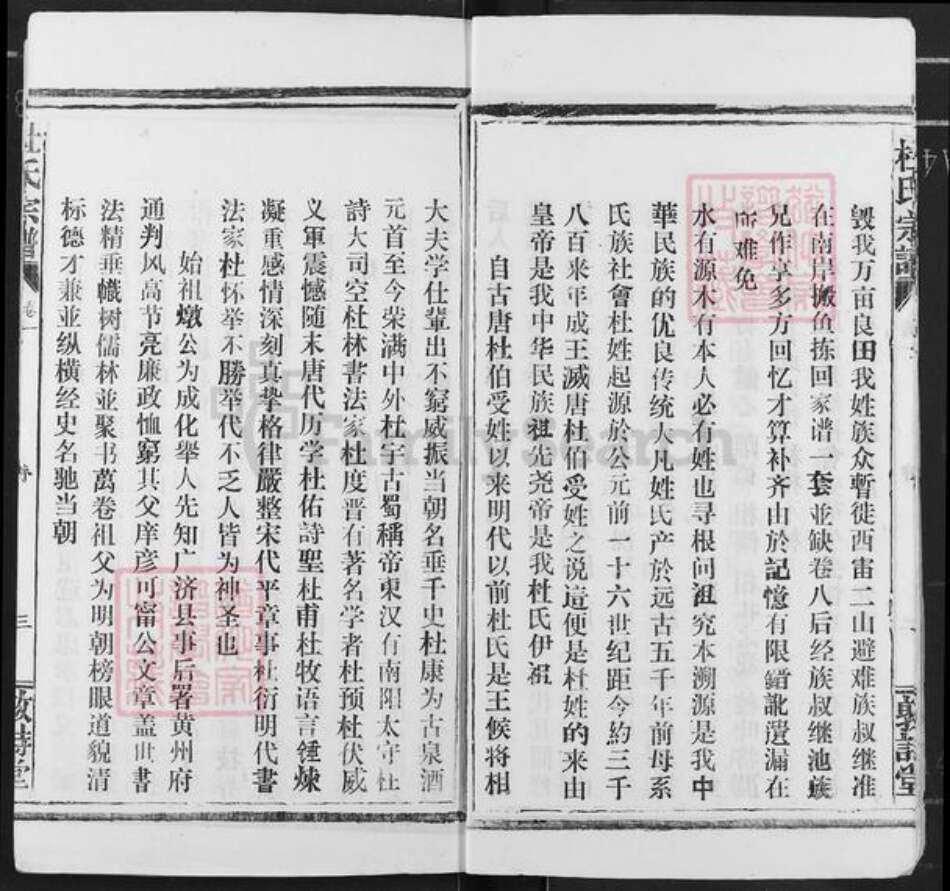 毀我万亩良田我姓族众暫徙西宙二山避难族叔继准
在南岸搬鱼拣回家谱一套並缺卷八后经族叔继池族
兄作享多方回忆才算补齐由於記憶有限錯訛遺漏在
所难免
水有源木有本人必有姓也寻根问祖究本溯源是我中
華民族的优良传统大凡姓氏产於远古五千年前母系
氏族社會杜姓起源於公元前一十六世纪距今約三千
八百来年成王滅唐杜伯受姓之说這便是杜姓的来由
皇帝是我中华民族祖先尧帝是我杜氏伊祖
自古唐杜伯受姓以来明代以前杜氏是王候将相
杜氏宗譜
二
敦詩堂
大夫学仕輩出不窮威振当朝名垂千史杜康为古泉酒
元首至今荣满中外杜宇古蜀稱帝東汉有南阳太守杜
詩大司空杜林書法家杜度晋有著名学者杜预杜伏威
义軍震憾随末唐代历学杜佑詩聖杜甫杜牧语言锤煉
凝重感情深刻真挚格律嚴整宋代平章事杜衍明代書
法家杜怀举不勝举代不乏人皆为神圣也
始祖燉公为成化舉人先知广济县事后署黄州府
通判风高节亮廉政恤窮其父庠彦可甯公文章盖世書
法精垂幟树儒林並聚书萬卷祖父为明朝榜眼道貌清
标德才兼並纵横经史名驰当朝
杜氏宗譜
卷一
序
三
敦詩堂
FamilySearch